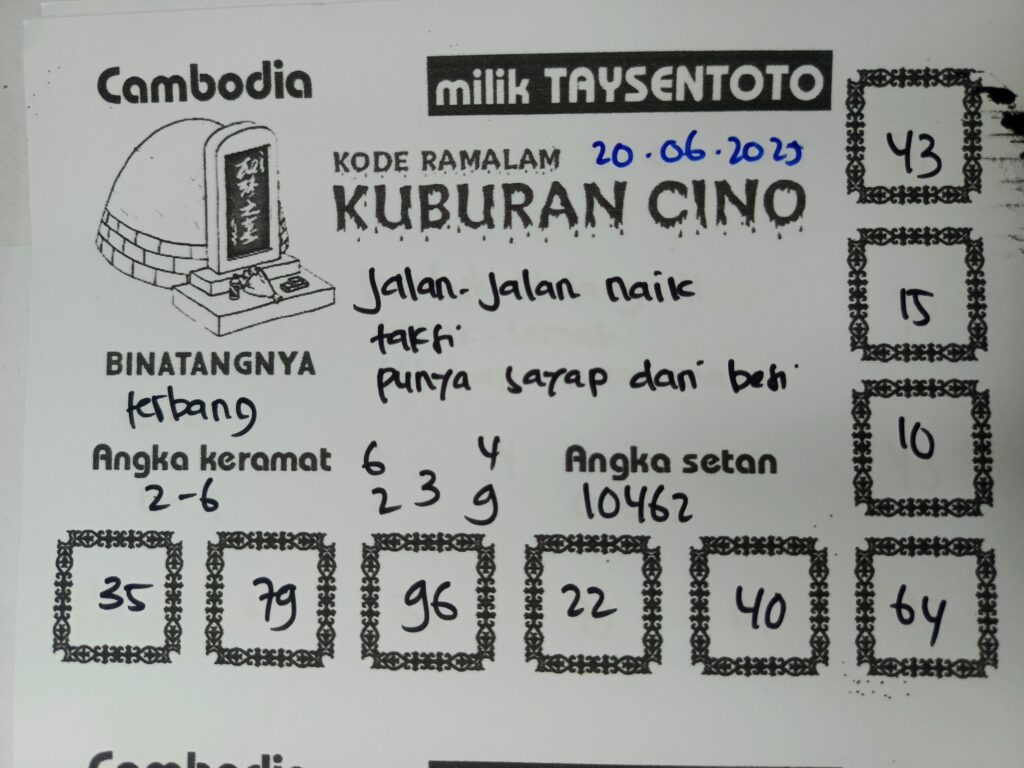 Cambodia
milik TAYSENTOTO
KODE RAMALAM 20.06.2025
KUBURAN CINO
Jalan-Jalan naik
taksi
punya sayap dari besi
BINATANGNYA
terbang
Angka keramat
2-6
6 4
2 3 9
Angka setan
10462
43
15
10
35 79 96 22 40 64
Cambodia